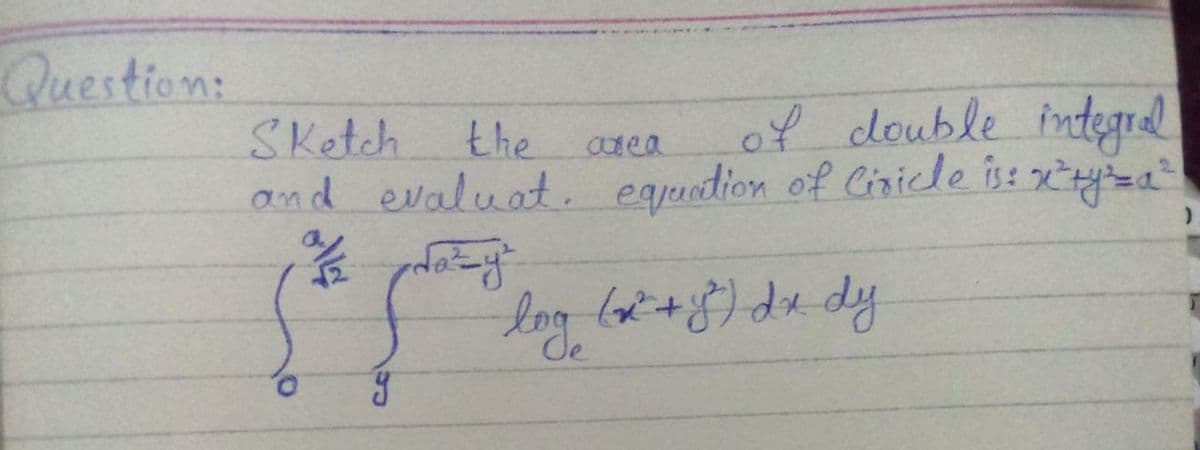 Question:
Sketch the area of double integral
and evaluat. equation of Ciricle is: x²+y²=a²
∫₀^(a/√2) ∫_y^(√(a²-y²)) logₑ (x²+y²) dx dy